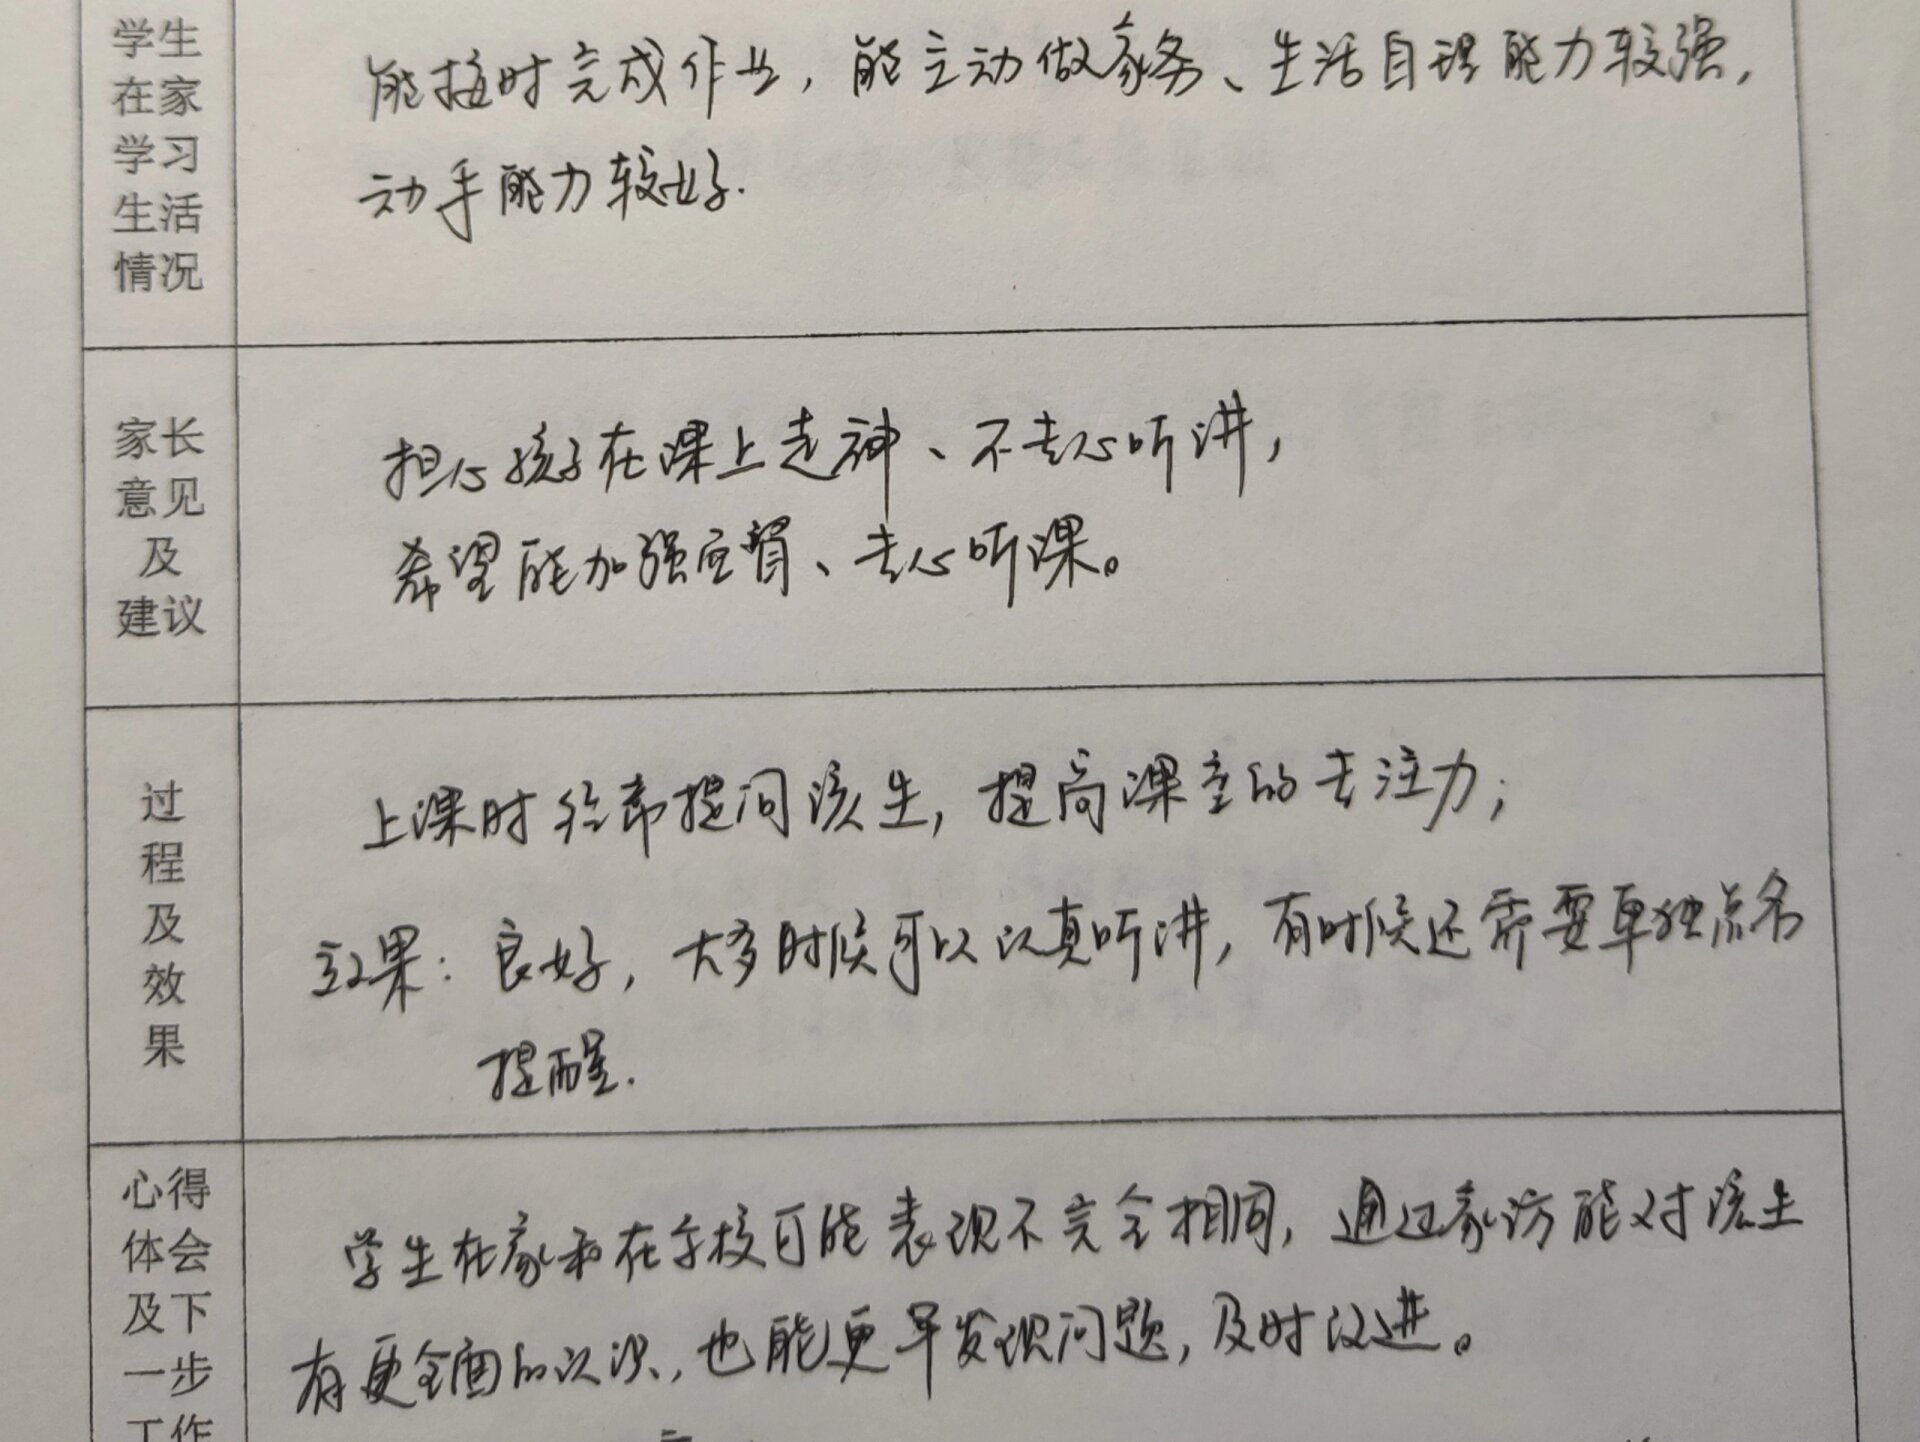 学生
在家
学习
生活
情况
能按时完成作业，能主动做家务、生活自理能力较强，
动手能力较好.
家长
意见
及
建议
担心孩子在课上走神、不专心听讲，
希望能加强监督、专心听课。
过
程
及
效
果
上课时经常提问该生，提高课堂的专注力；
效果：良好，大多时候可以认真听讲，有时候还需要单独点名
提醒.
心得
体会
及下
一步
工作
学生在家和在学校可能表现不完全相同，通过家访能对该生
有更全面的认识，也能更早发现问题，及时改进。